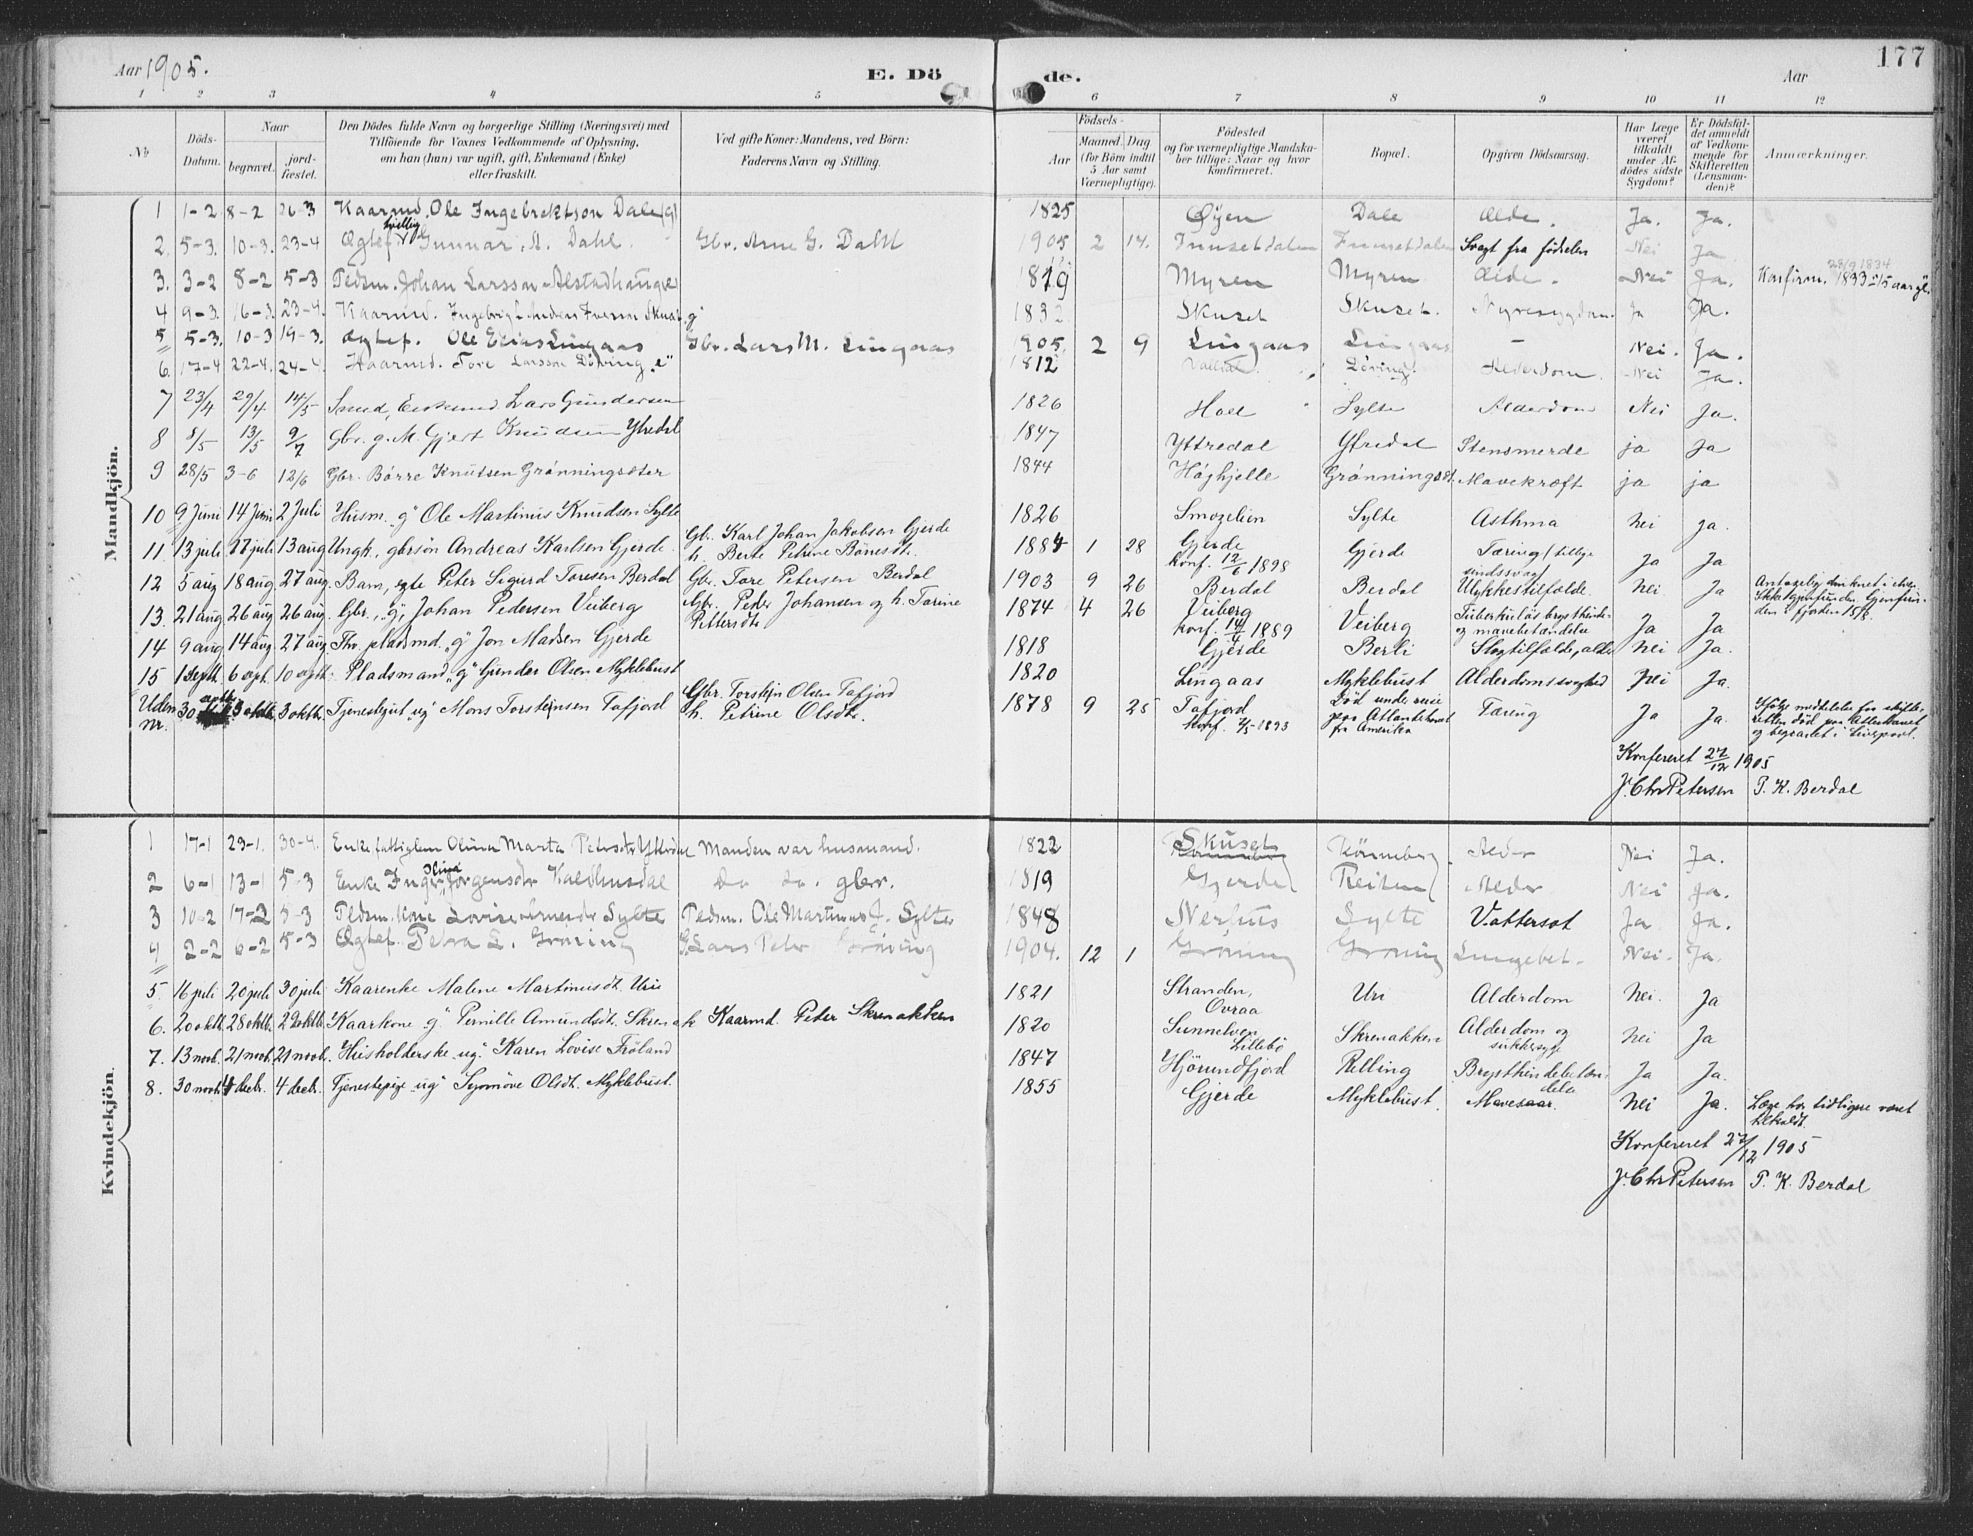 177
Aar 1905. E. Dö de. Aar
1 2 3 4 5 6 7 8 9 10 11 12
No Döds-Datum. Naar begravet. jordfæstet. Den Dödes fulde Navn og borgerlige Stilling (Næringsvei) med Tilföiende for Voxnes Vedkommende af Oplysning, om han (hun) var ugift, gift, Enkemand (Enke) eller fraskilt. Ved gifte Koner: Mandens, ved Börn: Faderens Navn og Stilling. Födsels- Aar Maaned. Dag (for Börn indtil 5 Aar samt Værnepligtige). Födested og for værnepligtige Mandskaber tillige: Naar og hvor konfirmeret. Bopæl. Opgiven Dödsaarsag. Har Læge været tilkaldt under Afdödes sidste Sygdom? Er Dödsfaldet anmeldt af Vedkommende for Skifteretten (Lensmanden)? Anmærkninger.
Mandkjön.
1 1-2 8-2 26-3 Kaarmd. Ole Ingebrektson Dale (g) 1825 Øyen Dale Ælde. Ja. Ja.
2. 5-3. 10-3. 23-4 Ægtef. tvillig Gunnar A. Dahl. Gbr. Arne G. Dahl 1905 2 14. Innsetdalen Innsetdalen Svagt fra fødselen Nei Ja
3. 3-2 8-2 5-3 Pedsm. Johan Larsson Alstadhauge 1819 Myren Myren Ælde. Nei Ja. Konfirm. 1833 15 aar gl. 28/9 1834
4 9-3. 16-3. 23-4. Kaarmd. Ingebrigt Anders Iverson Skuset g 1832 Skuset Skuset. Nyresygdom Ja Ja.
5 5-3. 10-3 19-3. Ægtef. Ole Elias Lingaas Gbr. Lars M. Lingaas 1905. 2 9 Lingaas Lingaas - Nei. Ja.
6. 17-4 22-4. 24-4. Kaarmd. Tore Larsson Döving "e" 1812 Döving Alderdom. Nei Ja.
7 23/4 29/4 14/5 Smed, Enkemd Lars Gundersen 1826 Hole Sylte Alderdom Nei Ja.
8 8/5 13/5 9/7 Gbr. g. M. Gjert Knudsen Ytredal 1847 Yttredal Yttredal Stensmerde ja Ja
9 28/5 3-6 12/6 Gbr. Børre Knutsen Grönningsæter 1844 Høghjelle Grønningsæt. Mavekræft ja ja
10 9 Juni 14 Juni 2 Juli Husm. "g" Ole Martinus Knudsen Sylte 1826 Smozelien Sylte Asthma Nei ja.
11. 13 juli 17 juli 13 aug Ungk., gbrsøn Andreas Karlsen Gjerde. Gbr. Karl Johan Jakobsen Gjerde h. Berte Petrine Bönesdt. 1884 1 28 Gjerde konf. 12/6 1898 Gjerde Tæring (tillige sindssvag) Ja Ja
12 5 aug 18 aug. 27 aug. Barn, egte Peter Sigurd Toresen Berdal Gbr. Tore Petersen Berdal 1903 9 26 Berdal Berdal Ulykkestilfælde. Nei Ja Antagelig druknet i elven. Ikke gjenfunden. Gjenfunden i fjorden 15/8
13. 21 aug 26 aug 26 aug. Gbr., "g", Johan Pedersen Veiberg Gbr. Peder Johansen og h. Tarine Pettersdt. 1874 4 26 Veiberg konf. 14/4 1889 Veiberg Tuberkuløs brysthinde- og mavebetændelse Ja Ja
14 9 aug 14 aug. 27 aug. Thv. pladsmd. "g" Jon Madsen Gjerde 1818 Gjerde Berli Slagtilfælde, alder Nei Ja.
15 1 septb. 6 sept. 10 septb. Pladsmand "g" Gunder Olsen Myklebust 1820 Lingaas Myklebust Alderdomssvaghed Nei Ja.
Uden nr. 30 3 oktb. 3 oktb. Tjenestegut "ug" Mons Torsteinsen Tafjord Gbr. Torstejn Olsen Tafjord h. Petrine Olsdt. 1878 9 25 Tafjord Konf. 7/5 1893 Död under reise paa Atlanterhavet fra Amerika Tæring Ja Ja. Ifølge meddelelse fra skifteretten død paa Atlerhavet og begravet i Liverpool.
Konfereret 27/12 1905
J. Chr Petersen P. K. Berdal
Kvindekjön.
1 17-1 23-1. 30-4. Enke fattiglem Olina Marta Petersdtr Yttredal Manden var husmand. 1822 Skuset Rönneberg Alder Nei Ja.
2 6-1 13-1 5-3 Enke Inger Olina Jørgensdtr Kaldhusdal do do. gbr. 1819 Gjerde Reiten Alder Nei Ja.
3 10-2 17-2 5-3 Pedsm. Kone Lovise Arnesdtr Sylte Pedsm. Ole Martinus J. Sylte 1848 Nerhus Sylte Vattersot Ja Ja.
4 2-2 6-2 5-3 Ægtef. Petra L. Gröning G. Lars Peter Gröning 1904. 12 1 Gröning Gröning Lungebet. Nei. Ja.
5. 16 juli 20 juli 30 juli Kaarenke Malene Martinusdt. Uri 1821 Stranden, Ovraa Uri Alderdom Nei. Ja
6. 20 oktb. 28 oktb. 29 oktb. Kaarkone "g" Pernille Amundsdt. Skrenakk Kaarmd. Peter Skrenakken 1820 Sunnelven Lillebö Skrenakken Alderdom og sukkersyge Nei Ja
7. 13 novb. 21 novb. 21 novb. Husholderske "ug" Karen Lovise Fröland 1847 Hjörundfjord Relling Brysthindebetændelse Ja Ja.
8. 30 novb. 4 decb. 4 decb. Tjenestepige "ug" Synnöve Olsdt. Myklebust. 1855 Gjerde Myklebust. Mavesaar. Nei Ja. Læge har tidligere været tilkaldt.
Konfereret 27/12 1905
J. Chr Petersen P. K. Berdal